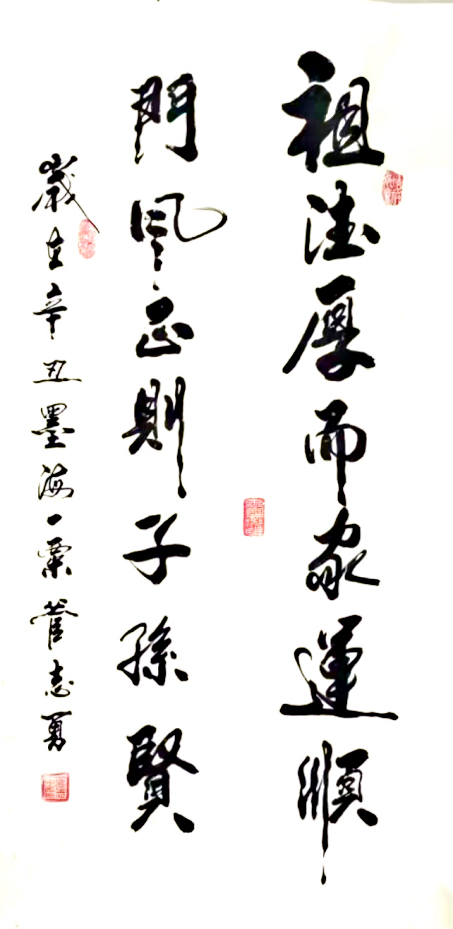 祖德厚而家運順
門風正則子孫賢
歲在辛丑墨海一粟管志勇